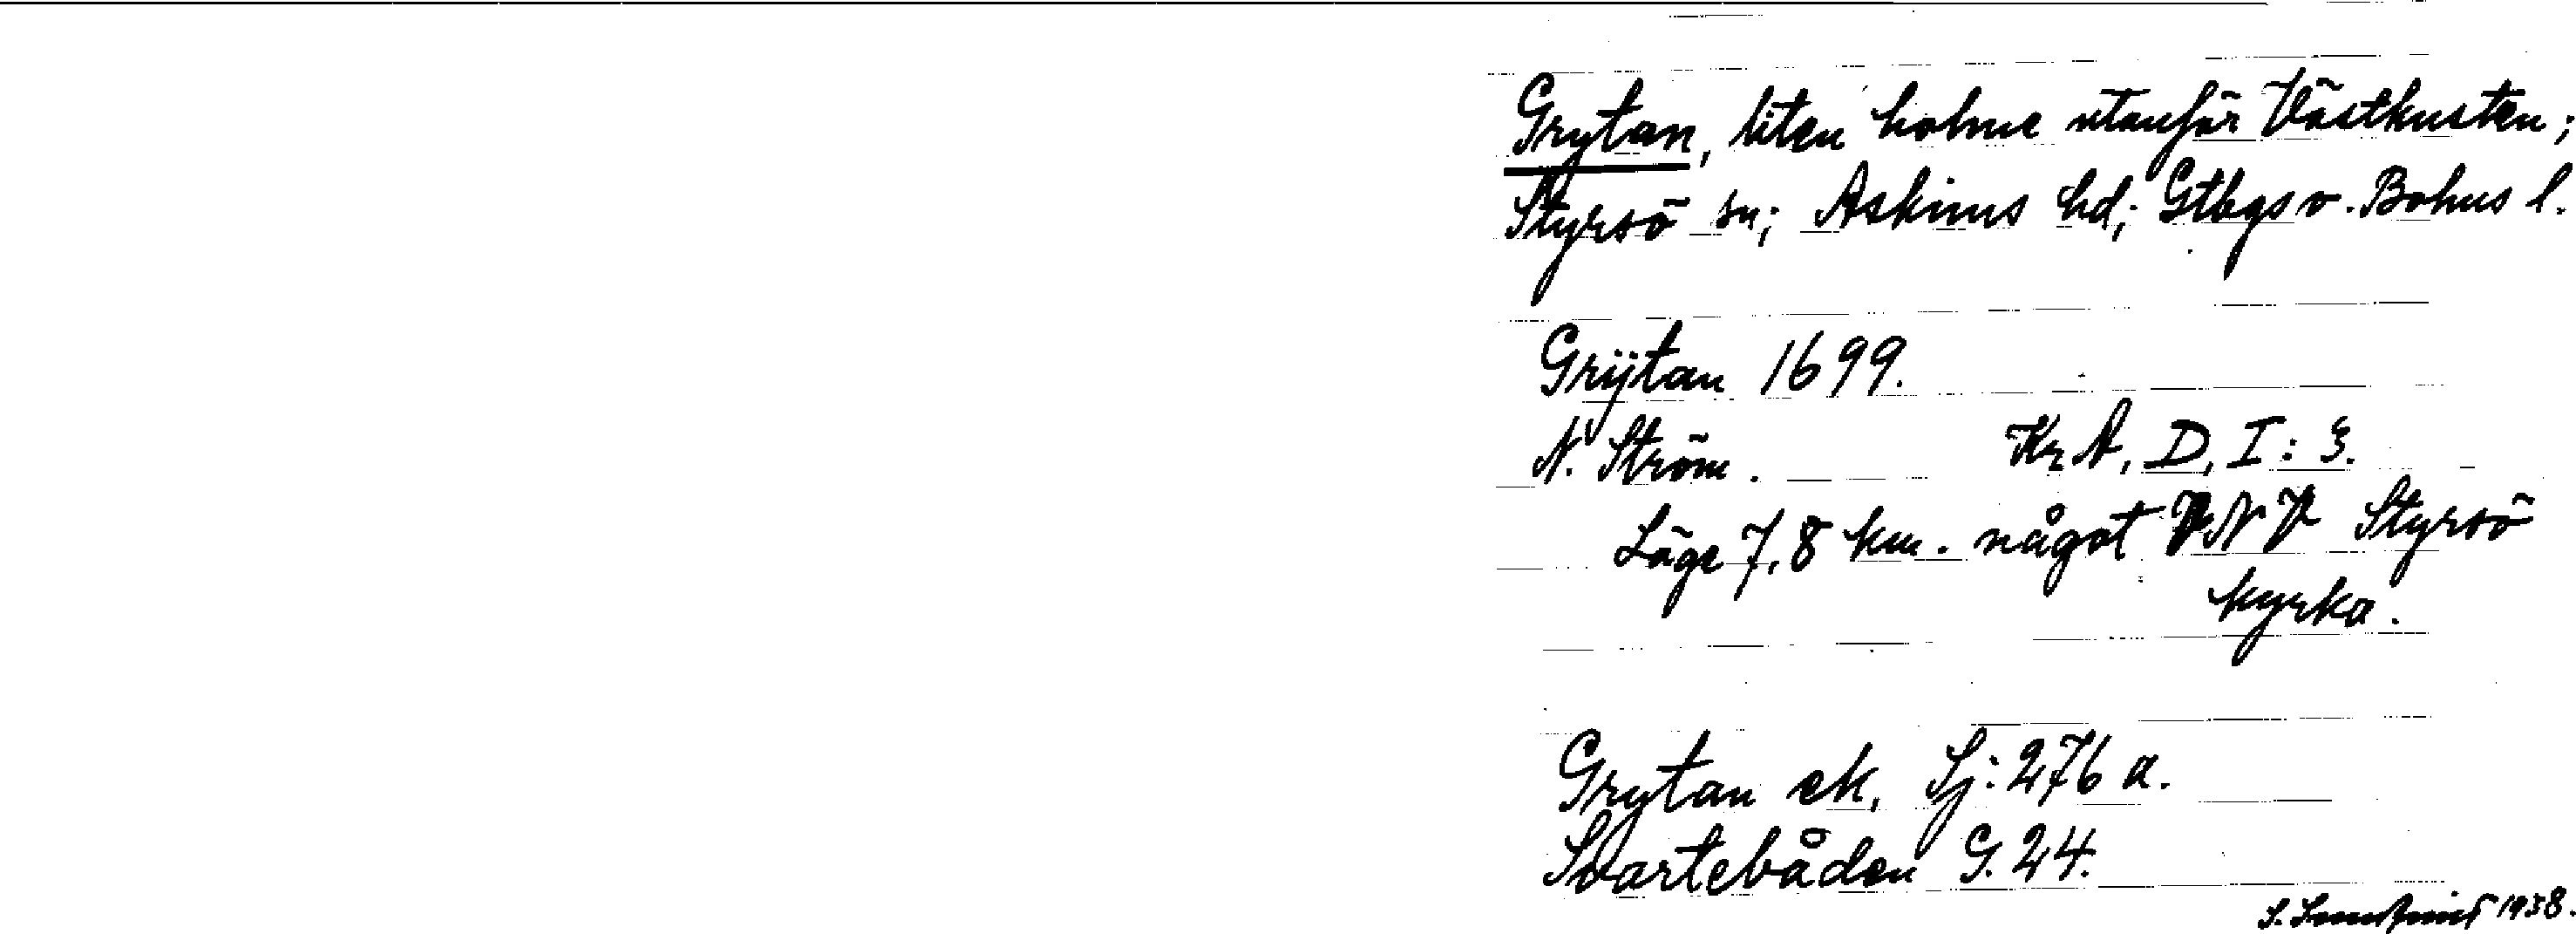 Grytan, liten holme utanför Västkusten;
Styrsö sn; Askims hd; Gtbgs o. Bohus l.
Grÿtan 1699.
N. Ström. Kr A, D, I: 3.
Läge 7,8 km. något VNV Styrsö
kyrka.
Grytan ek. Sj: 276 a.
Svartebåden G. 24.
S. 1938.